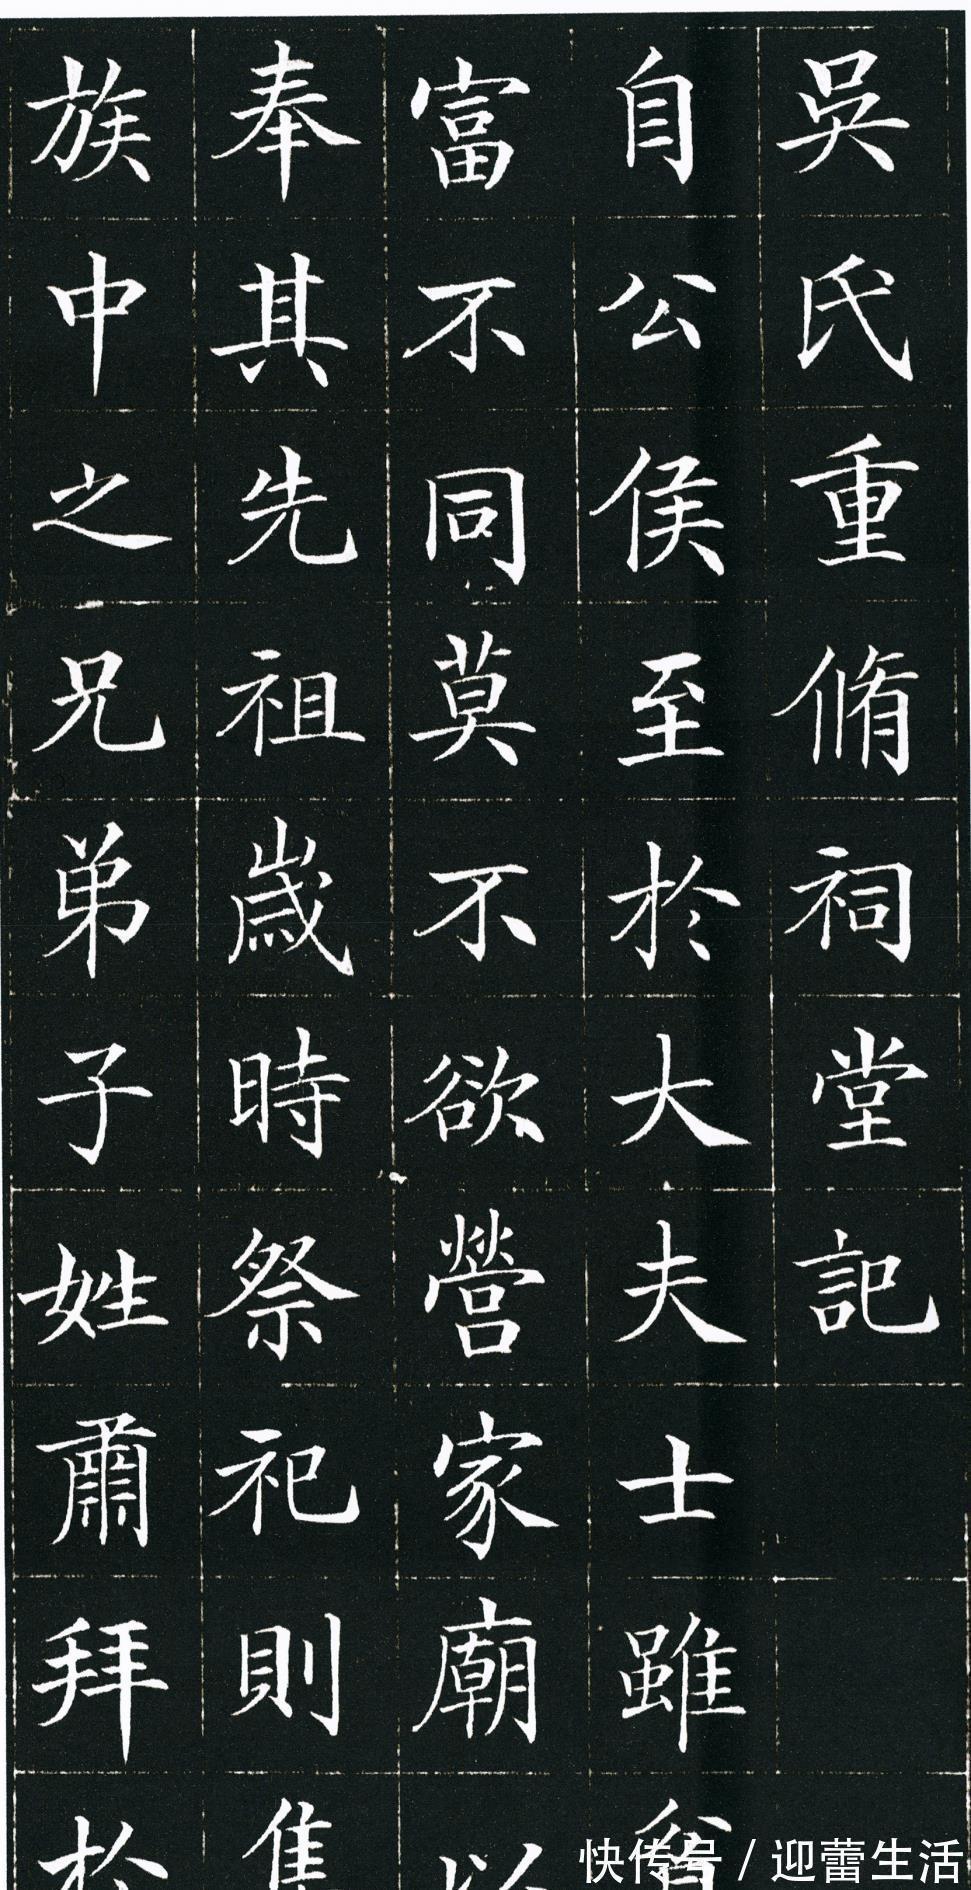 吳氏重脩祠堂記
自公侯至於大夫士雖貧
富不同莫不欲營家廟以
奉其先祖歲時祭祀則集
族中之兄弟子姓肅拜於
快传号 / 迎蕾生活